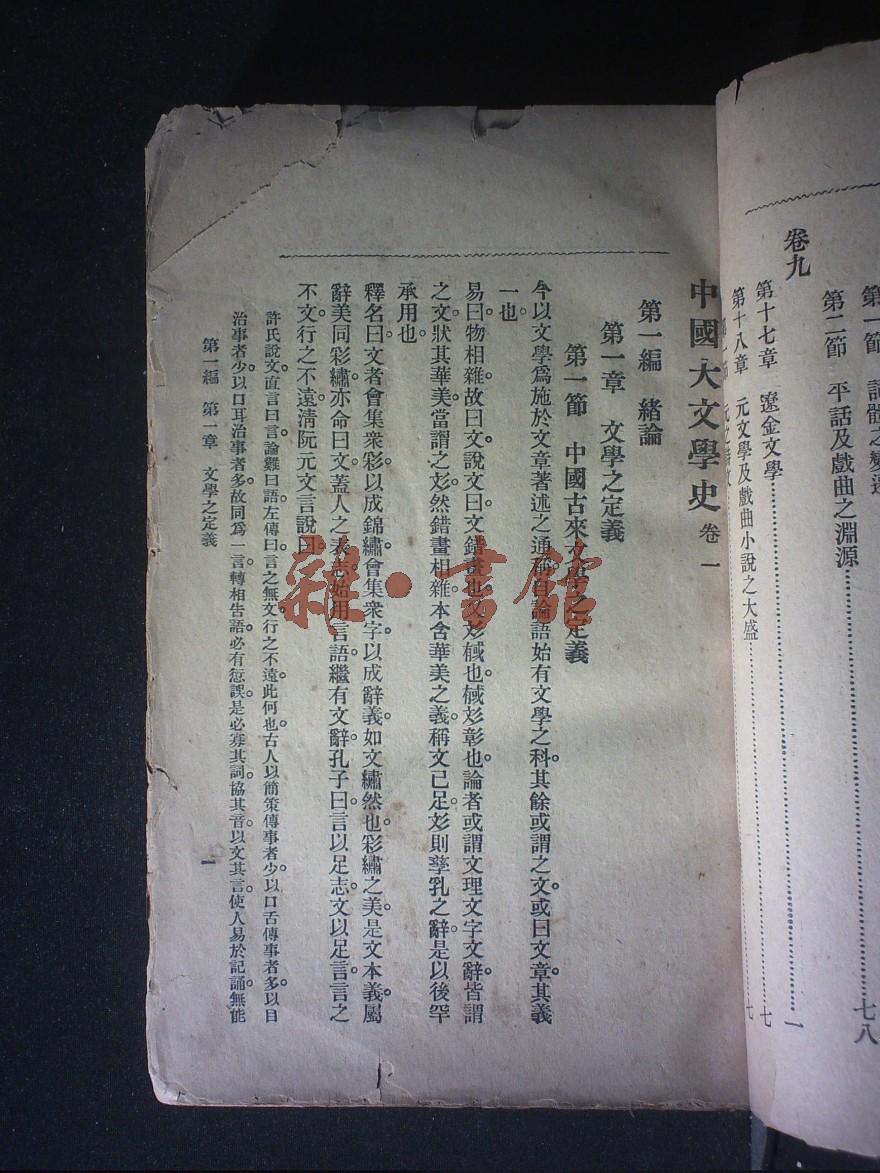 卷九
第二節　平話及戲曲之淵源……七八
第十七章　遼金文學……一
第十八章　元文學及戲曲小說之大盛……七
中國大文學史　卷一
第一編　緒論
第一章　文學之定義
第一節　中國古來文學之定義
今以文學爲施於文章著述之通稱。自論語始有文學之科。其餘或謂之文。或曰文章。其義
一也。
易曰。物相雜。故曰文。說文曰。文錯畫也。文彣𢒈也。𢒈彣彰也。論者或謂文理文字文辭。皆謂
之文。狀其華美。當謂之彣。然錯畫相雜。本含華美之義。稱文已足。彣則孳乳之辭。是以後罕
承用也。
釋名曰。文者會集衆彩。以成錦繡。會集衆字。以成辭義。如文繡然也。彩繡之美。是文本義。屬
辭美同彩繡。亦命曰文。蓋人之表志。始用言語。繼有文辭。孔子曰。言以足志。文以足言。言之
不文。行之不遠。淸阮元文言說曰。
許氏說文。直言曰言。論難曰語。左傳曰。言之無文。行之不遠。此何也。古人以簡策傳事者少。以口舌傳事者多。以目
治事者少。以口耳治事者多。故同爲一言。轉相告語。必有愆誤。是必寡其詞。協其音。以文其言。使人易於記誦。無能
第一編　第一章　文學之定義
一
雜·書館